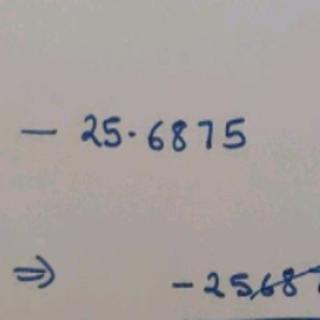 - 25.6875
⇒ - 25,68